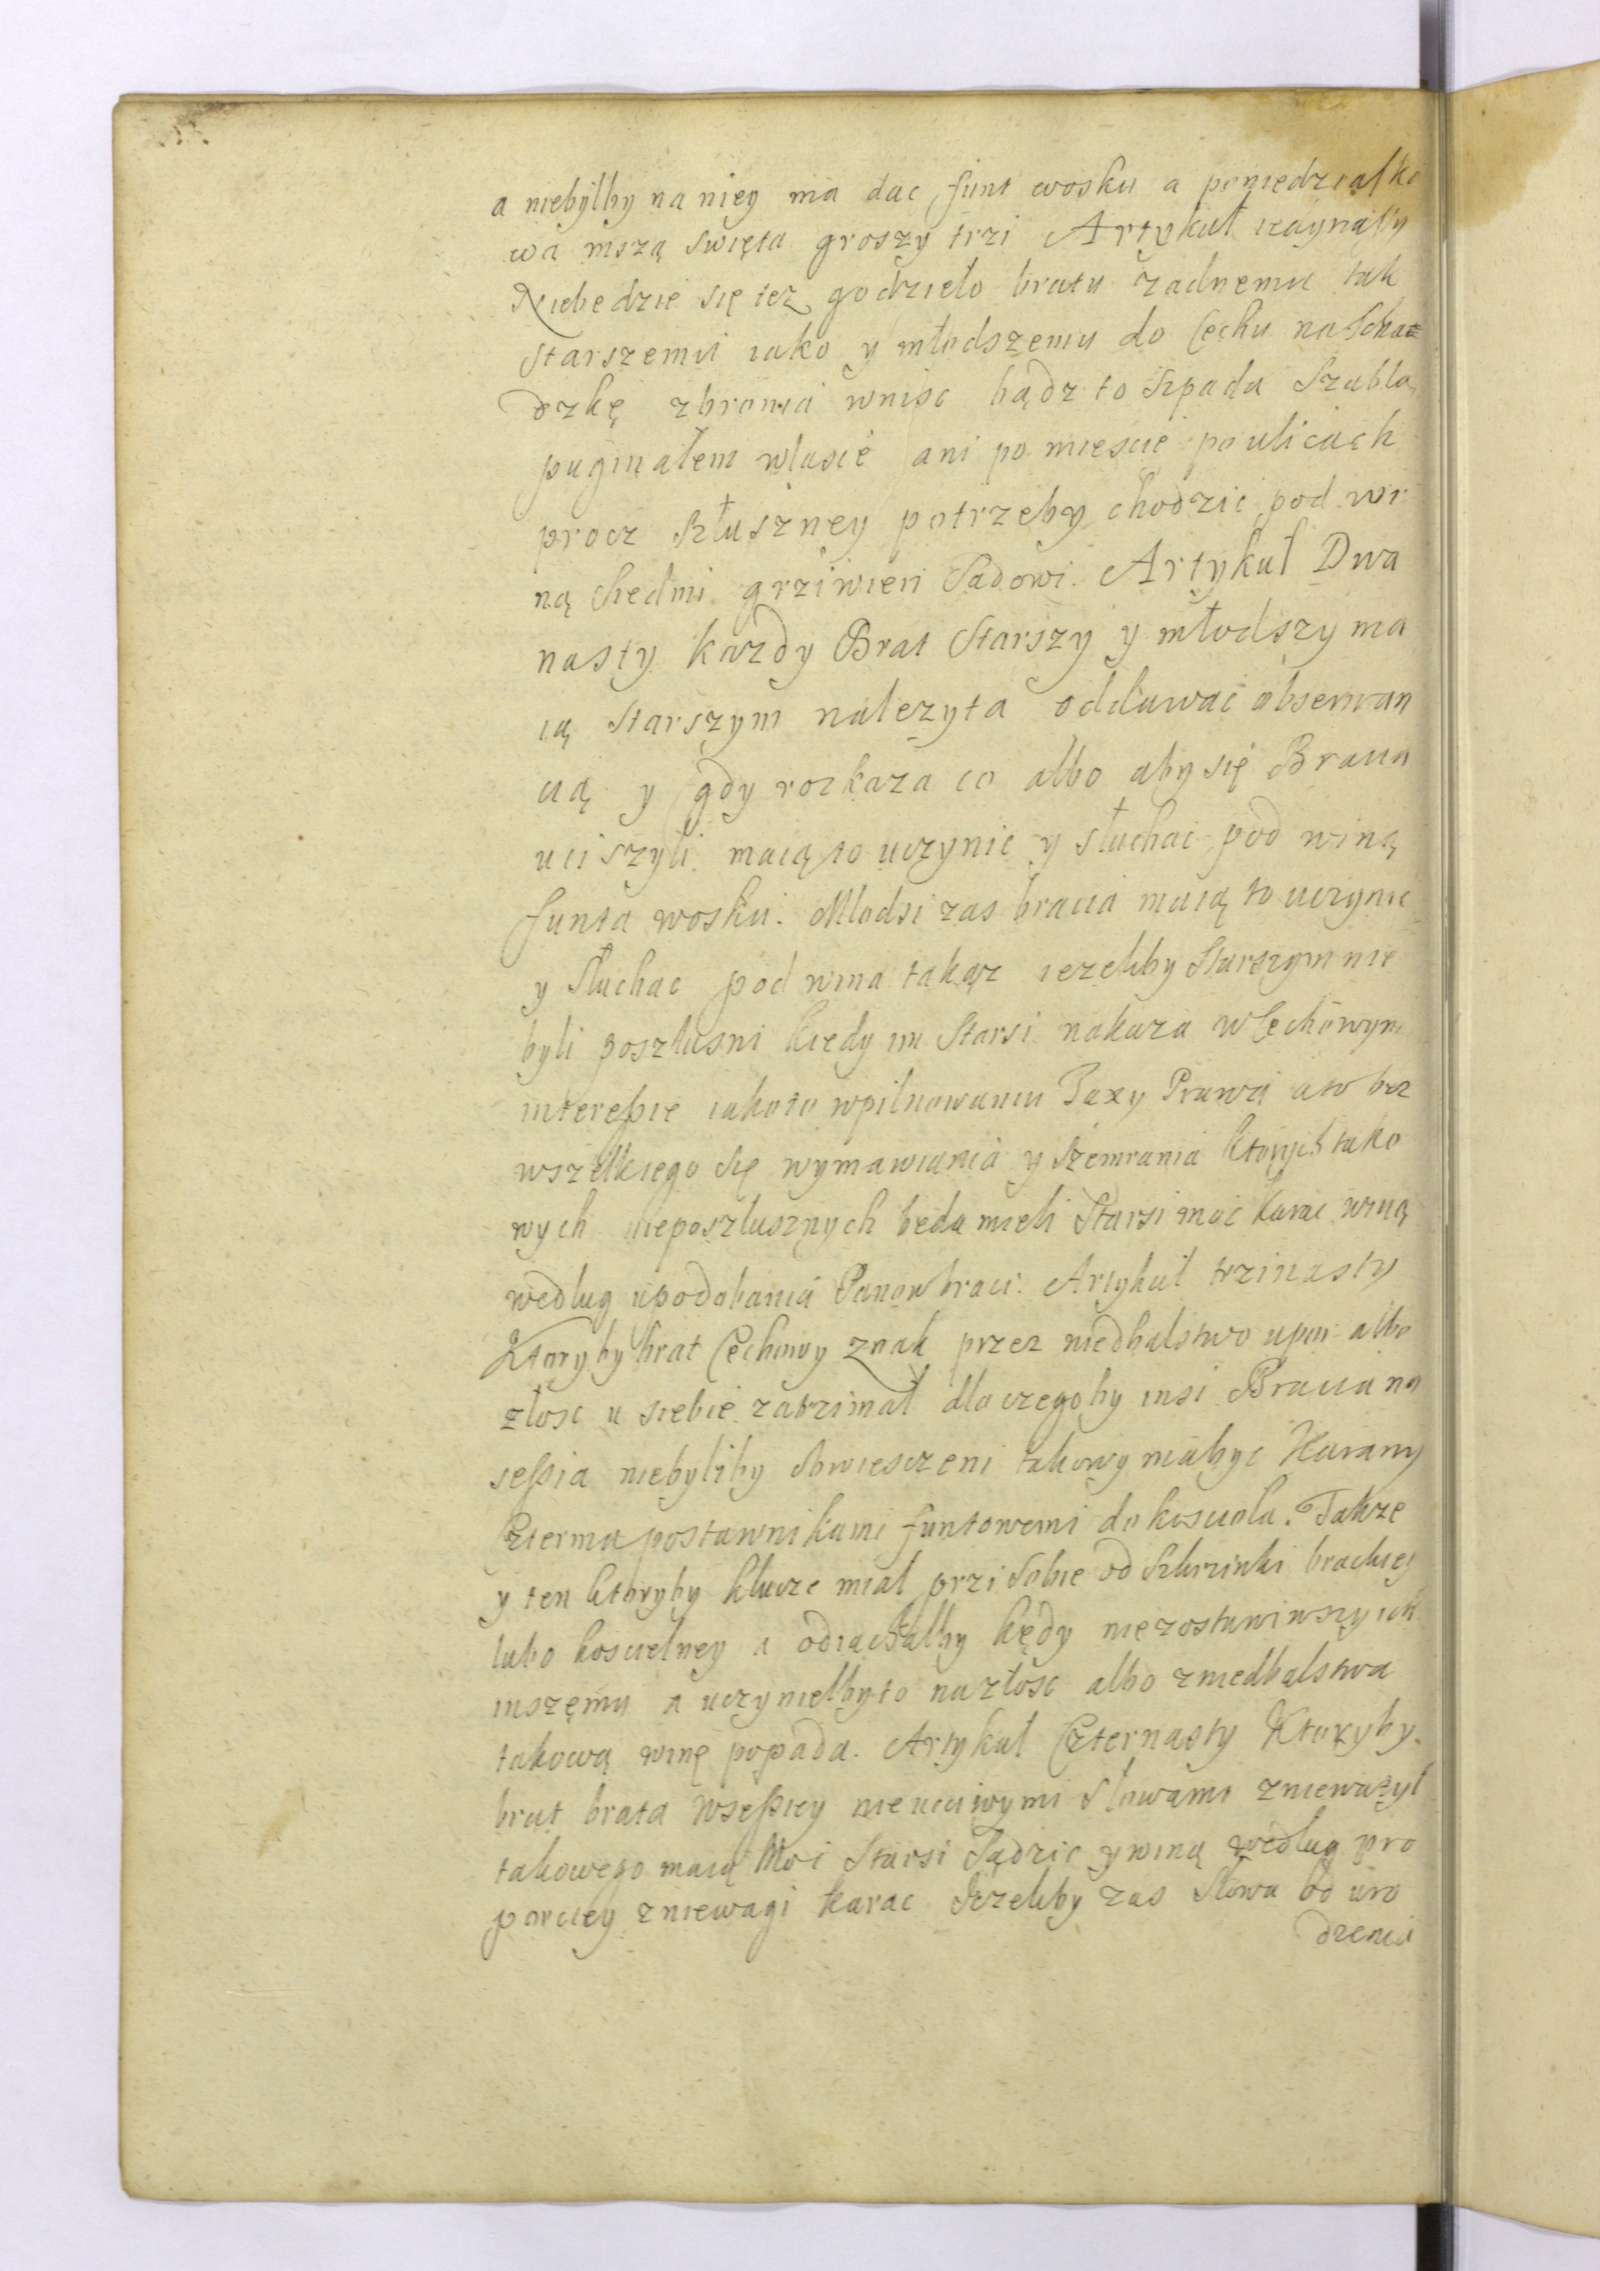 a niebylby na niey ma dac funt wosku a poniedzialko
wa mszą swięta groszy trzi Artykuł
Niebedzie się tez godzieło bratu zadnemu tak
starszemu iako y młodszemu do Cechu na Scha=
dzkę zbronia wnisc bądz to szpada Szabla,
puginałem ani po miescie po ulicach
procz szłuszney potrzeby chodzic pod wi
ną siedmi grziwien Sądowi. Artykuł Dwa
nasty kazdy Brat Starszy y młodszy ma
ią Starszym nalezyta oddawac obserwan
cią y gdy rozkaza co albo aby się Bracia
uciszyli maią to uczynic y słuchac pod winą
funta wosku. Mlodsi zas bracia maią to uczynic
y słuchac pod wina takąz iezeliby Starszym nie
byli poszlusni kiedy im Starsi nakaza w Cechowym
interessie iako to wpilnowaniu Taxy Prawa a to bez
wszelkiego się wymawiania y szemrania Ktorych tako
wych nieposzlusznych beda mieli Starsi moc karac winą
według upodobania Panow braci. Artykuł trzinasty
Ktoryby brat Cechowy znak przez niedbalstwo upor albo
złosc u siebie zatrzimał dla czegoby insi Bracia na
sessia niebyliby obwiesczeni takowy ma byc Karany
Czterma postawnikami funtowemi do koscioła. Takze
y ten ktoryby klucze miał przi sobie od Szkrzinki brackiey
lubo koscielney a odiachałby kędy niezostawiwszy ich
inszęmu a uczyniełby to nazłosc albo zniedbalstwa
takową winę popada. Artykuł Czternasty Ktoryby
brat brata wsessiey nieuciwymi słowami zniewazył
takowego maią Moc Starsi Sądzic y winą według pro
porciey zniewagi karac Iezeliby zas słowa od uro
dzenia